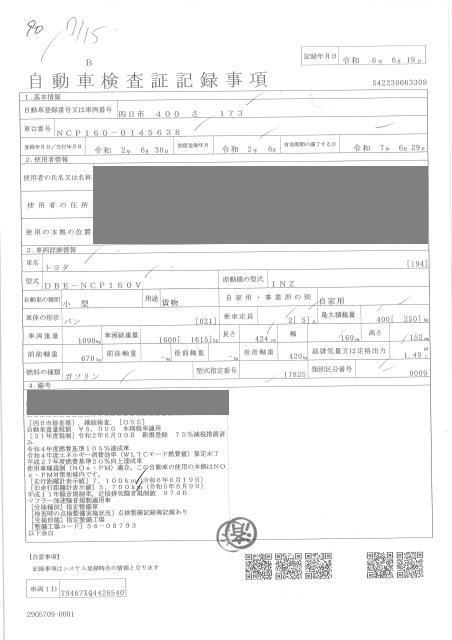 90 7/15
B
記録年月日 令和 6年 6月19日
自動車検査証記録事項
542230063308
1.基本情報
自動車登録番号又は車両番号 四日市 400 さ 173
車台番号 NCP160-0145638
登録年月日/交付年月日 令和 2年 6月30日 初度登録年月 令和 2年 6月 有効期間の満了する日 令和 7年 6月29日
2.使用者情報
使用者の氏名又は名称
使用者の住所
使用の本拠の位置
3.車両詳細情報
車名 トヨタ [194]
型式 DBE-NCP160V 原動機の型式 1NZ
自動車の種別 小型 用途 貨物 自家用・事業用の別 自家用
車体の形状 バン [021] 乗車定員 2[ 5]人 最大積載量 400[ 250]kg
車両重量 1090kg 車両総重量 1600[ 1615]kg 長さ 424cm 幅 169cm 高さ 152cm
前前軸重 670kg 前後軸重 -kg 後前軸重 -kg 後後軸重 420kg 総排気量又は定格出力 1.49L
燃料の種類 ガソリン 型式指定番号 17825 類別区分番号 0009
4.備考
[四日市検査場],継続検査,[OSS]
自動車重量税額 ¥5,000 本則税率適用
[31年度税制]令和2年6月30日 新規登録 75%減税措置済
み
令和4年度燃費基準105%達成車
令和4年度エネルギー消費効率(WLTCモード燃費値)算定未了
平成27年度燃費基準20%向上達成車
使用車種規制(NOx・PM)適合,この自動車の使用の本拠はNO
x・PM対策地域内です。
[走行距離計表示値]7,100km(令和6年6月19日)
[旧走行距離計表示値]5,700km(令和5年6月9日)
平成11年騒音規制車,近接排気騒音規制値 97dB
マフラー加速騒音規制適用車
[受検種別]指定整備車
[検査時の点検整備実施状況]点検整備記録簿記載あり
[受検形態]指定整備工場
[整備工場コード]54-08793
以下余白
済
[注意事項]
記録事項はシステム登録時点の情報となります
車両ID T9467XQ4426540
2905709-0001